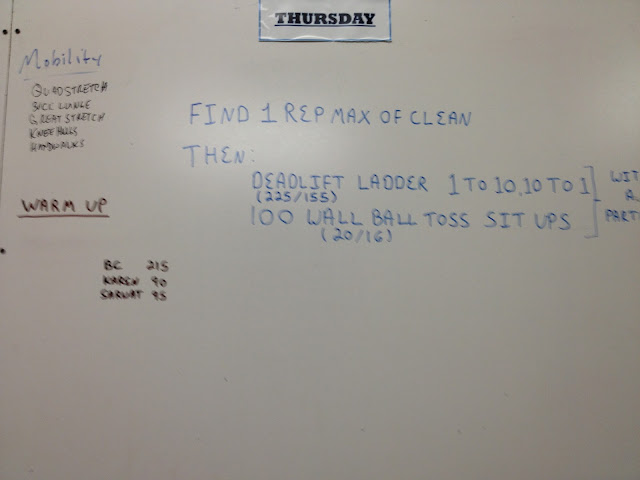 THURSDAY
Mobility
QUADSTRETCH
SICC LUNGE
GREAT STRETCH
KNEE HUGS
HANDWALKS
WARM UP
FIND 1 REP MAX OF CLEAN
THEN:
DEADLIFT LADDER 1 TO 10, 10 TO 1
(225/155)
100 WALL BALL TOSS SIT UPS
(20/16)
WIT
A
PART
BC 215
KAREN 90
SARWAT 95